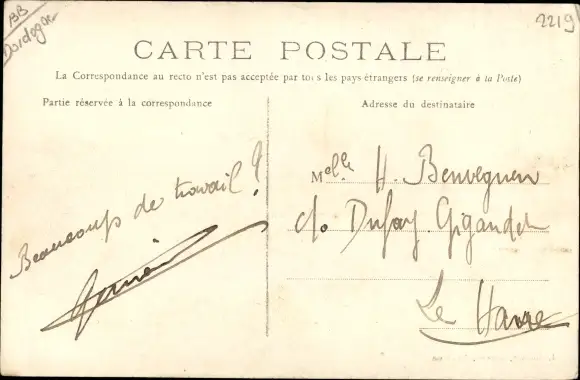 BB
Dordogne
2219
CARTE POSTALE
La Correspondance au recto n'est pas acceptée par tous les pays étrangers (se renseigner à la Poste)
Partie réservée à la correspondance
Adresse du destinataire
Beaucoup de travail !
Melle H. Benveguen
c/o Dufay Gigandet
Le Havre